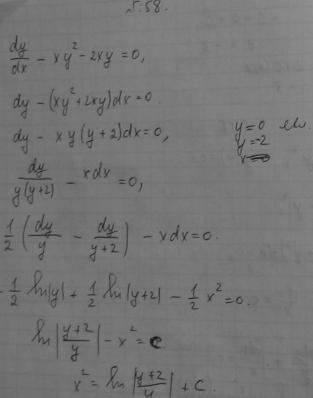 №58.
dy/dx - xy² - 2xy = 0,
dy - (xy² + 2xy)dx = 0.
dy - xy(y+2)dx = 0, y = 0
y = -2
dy/y(y+2) - xdx = 0,
1/2 (dy/y - dy/y+2) - xdx = 0.
- 1/2 ln|y| + 1/2 ln|y+2| - 1/2 x² = 0.
ln|y+2/y| - x² = C
x² = ln|y+2/y| + C.